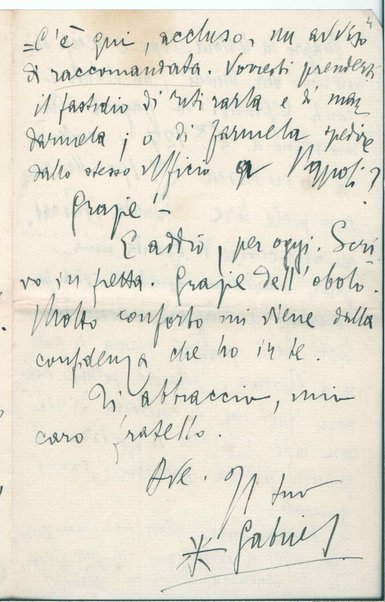 4
=C'è qui, accluso, un avviso
di raccomandata. Vorresti prenderti
il fastidio di ritirarla e di man
darmela; o di farmela spedire
dallo stesso Ufficio a Napoli?
Grazie!
E addio, per oggi. Scri
vo in fretta. Grazie dell'obolo.
Molto conforto mi viene dalla
confidenza che ho in te.
Ti abbraccio, mio
caro fratello.
Ave. Il tuo
Gabriel